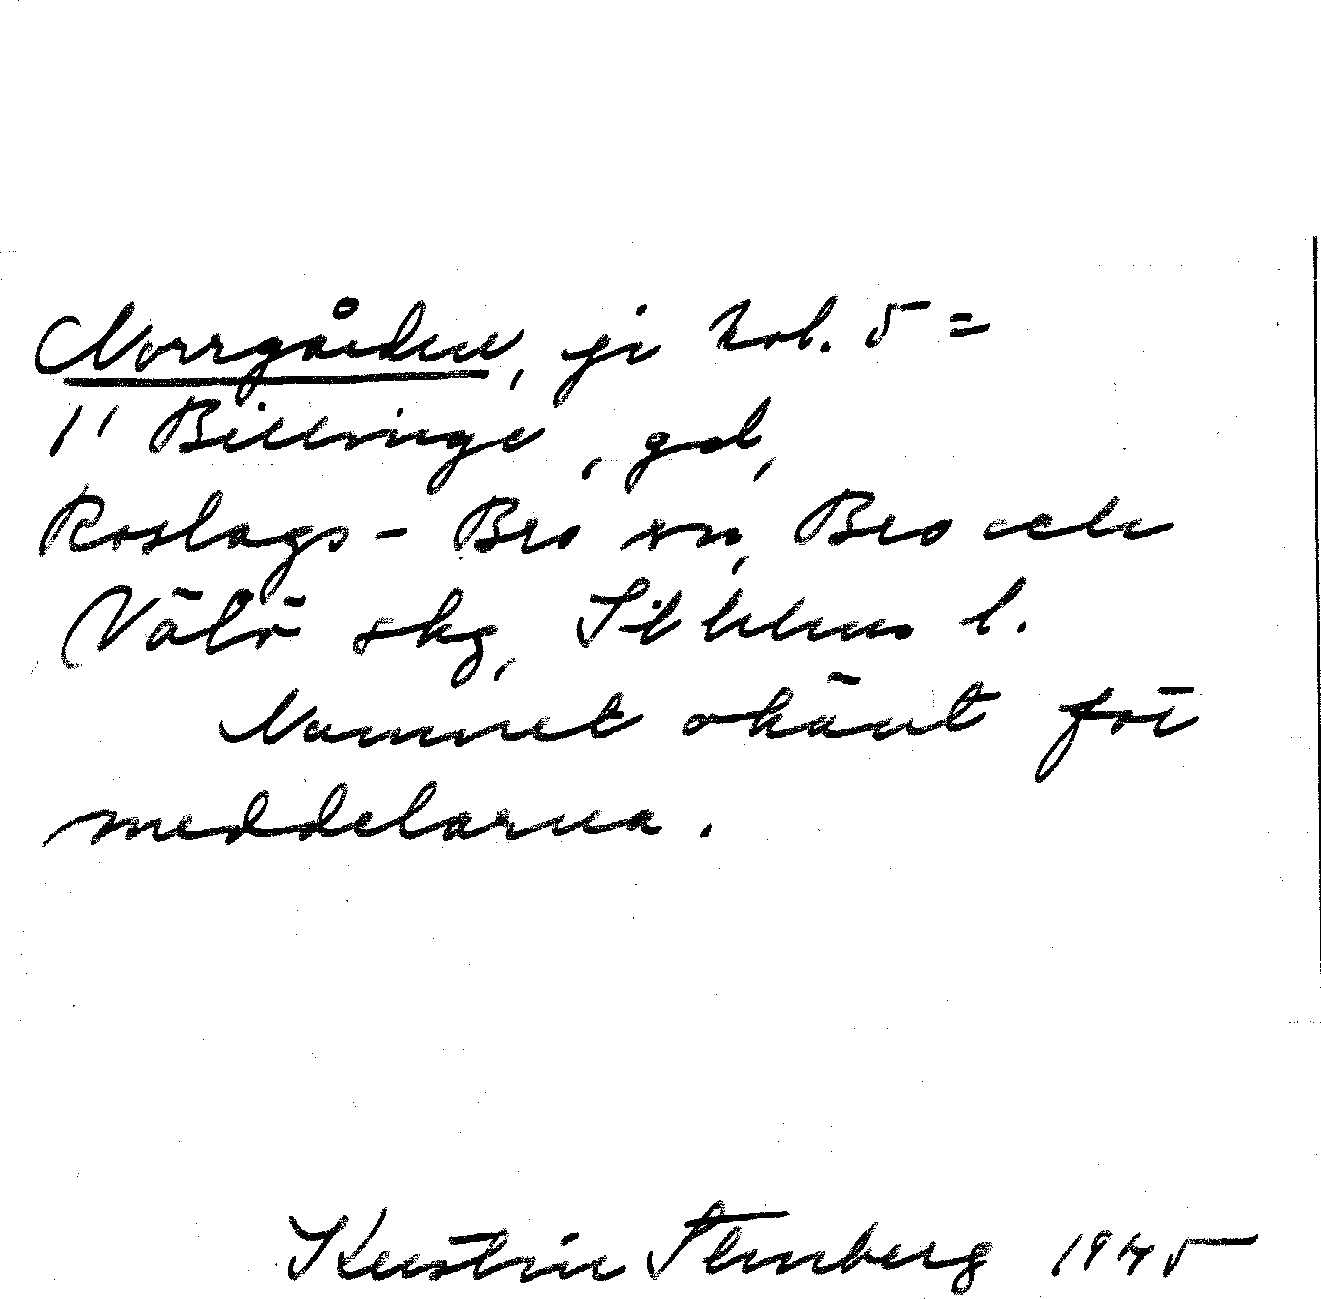 Norrgården, fr kol. 5 =
1' Billinge, gd,
Roslags-Bro sn, Bro och
Vätö skg, Sthlms l.
Namnet okänt för
meddelarna.
Kerstin Stenberg 1945